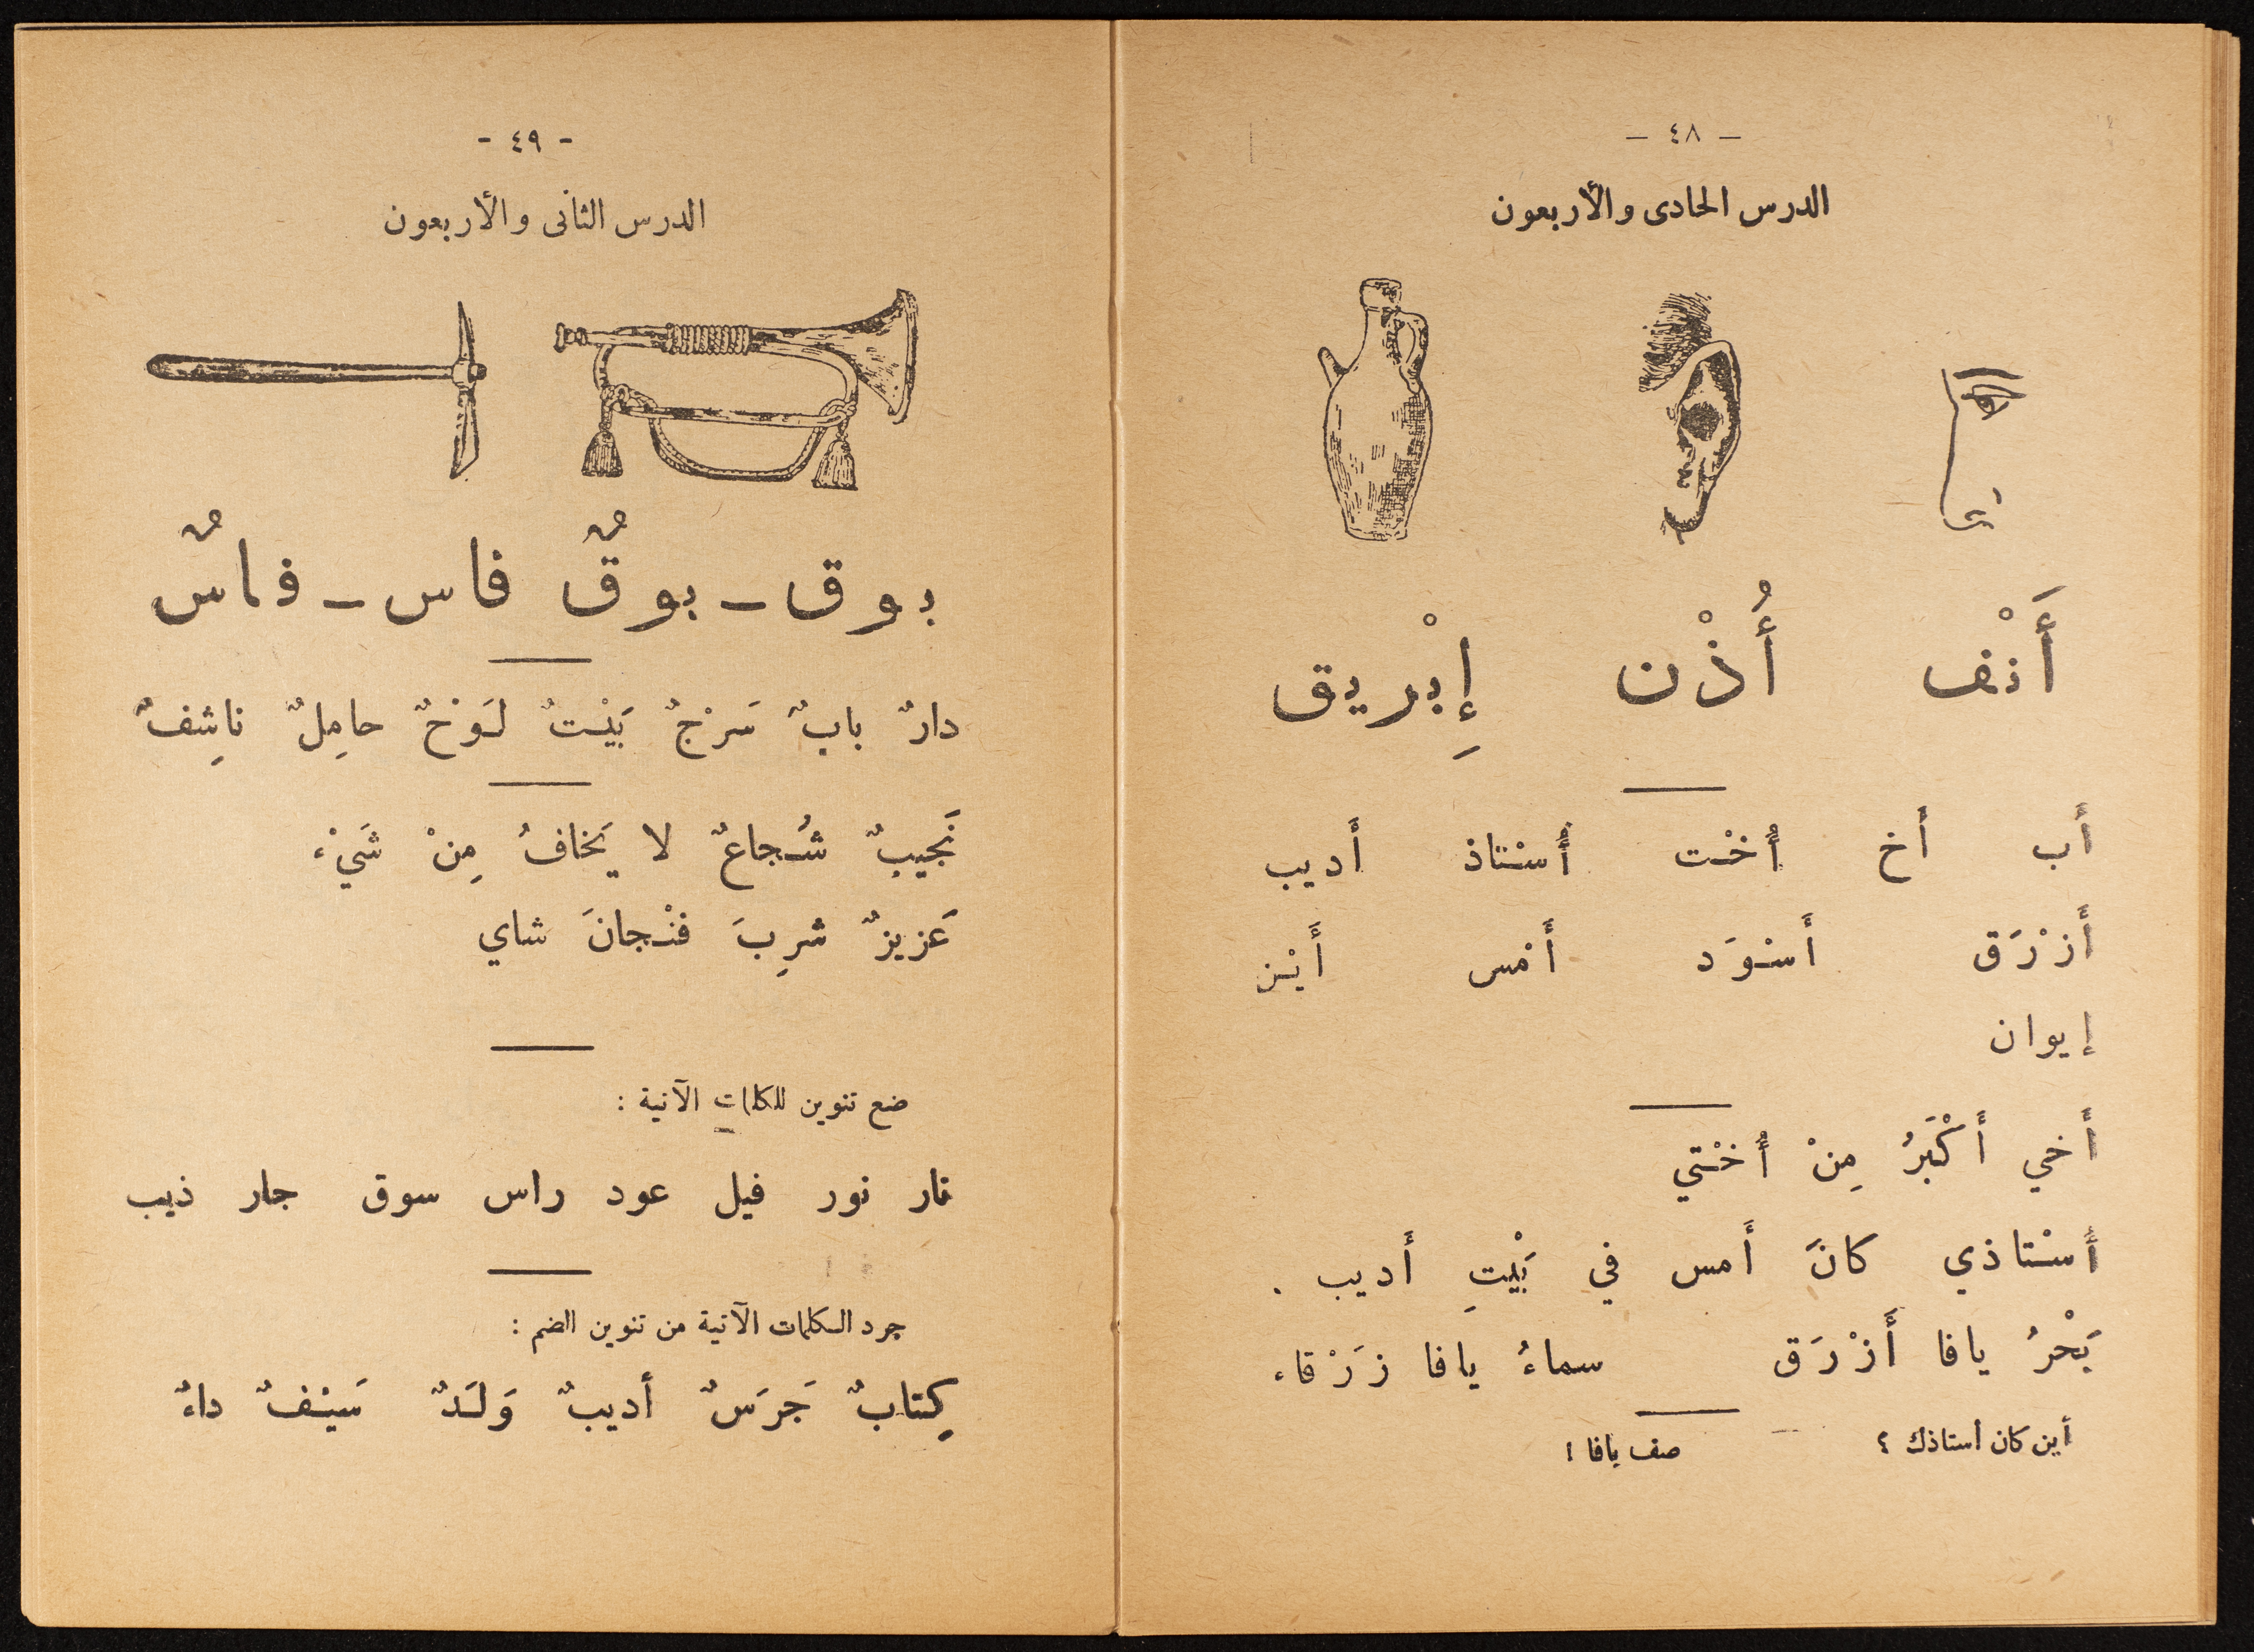 — ٤٨ —
الدرس الحادى والأربعون
أَنْف أُذْن إِبْريق
أَب أَخ أُخْت أُسْتاذ أَديب
أَزْرَق أَسْوَد أَمْس أَيْن
إيوان
أَخي أَكْبَرُ مِنْ أُخْتي
أُسْتاذي كانَ أَمس في بَيْتِ أَديب .
بَحْرُ يافا أَزْرَق سماءُ يافا زَرْقاء
أين كان أستاذك ؟ صف يافا !
- ٤٩ -
الدرس الثانى والأربعون
بوق ـ بوقٌ فاس ـ فاسٌ
دارٌ بابٌ سَرْجٌ بَيْتٌ لَوْحٌ حامِلٌ ناشِفٌ
نَجيبٌ شُجاعٌ لا يَخافُ مِنْ شَيْء
عَزيزٌ شرِبَ فنْجانَ شاي
ضع تنوين للكلمات الآتية :
نار نور فيل عود راس سوق جار ذيب
جرد الكلمات الآتية من تنوين الضم :
كِتابٌ جَرَسٌ أديبٌ وَلَدٌ سَيْفٌ داءٌ